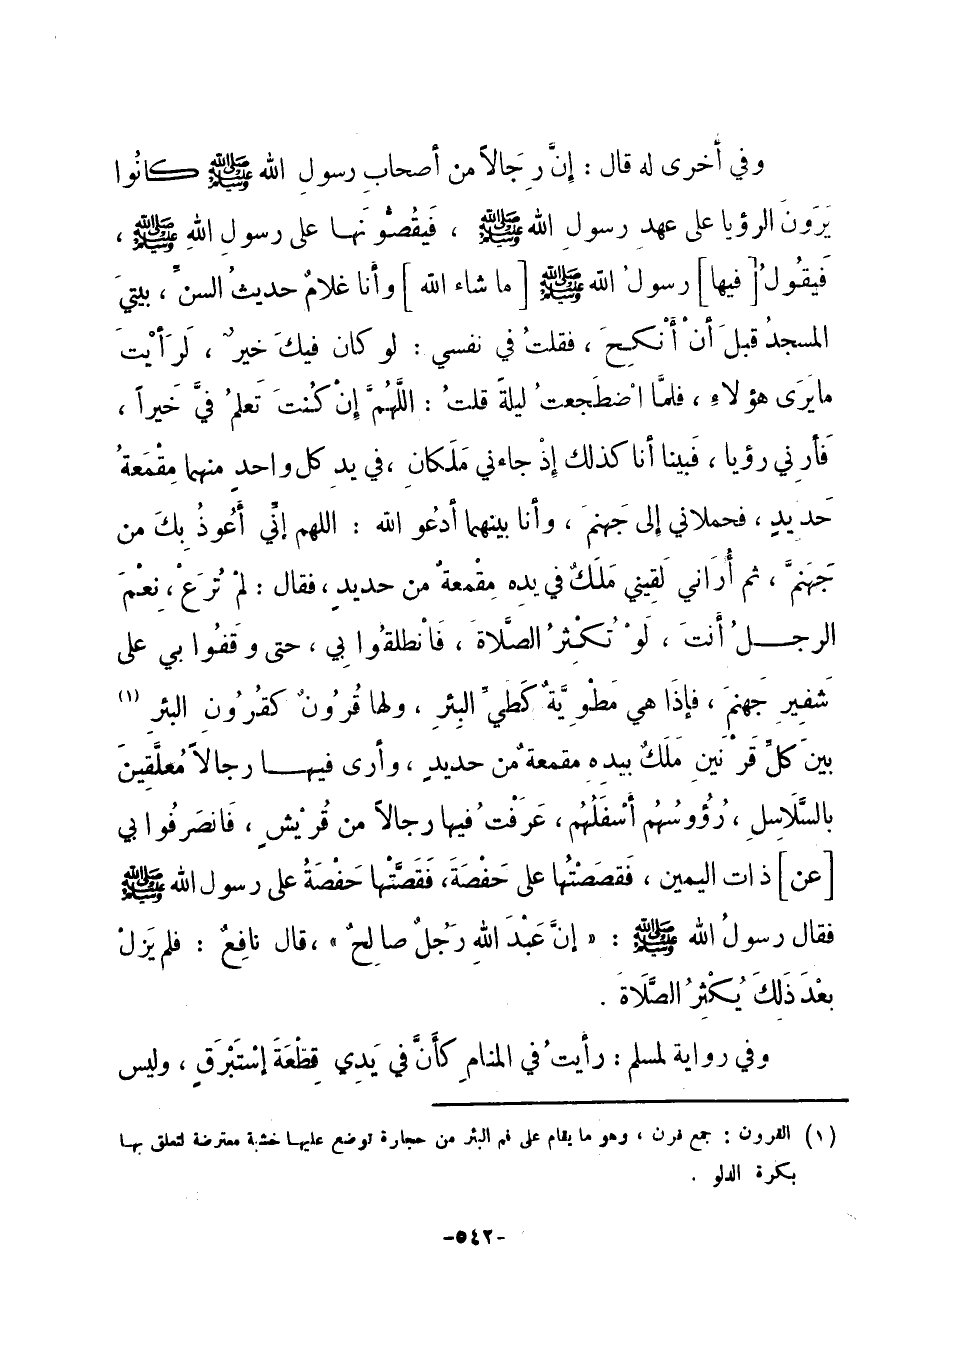 وفي أُخرى له قال : إنَّ رِجَالاً من أصحابِ رسولِ الله ﷺ كانُوا
يَرَونَ الرؤيا على عهدِ رسولِ الله ﷺ ، فَيقُصُّونَها على رسولِ اللهِ ﷺ ،
فَيقُولُ [ فيها ] رسولُ الله ﷺ [ ما شاء الله ] وأنا غلامٌ حديثُ السنِّ ، بيتيَ
المسجدُ قبلَ أنْ أَنْكِحَ ، فقلتُ في نفسي : لو كان فيكَ خيرٌ ، لَرَأَيْتَ
مايَرَى هؤلاءِ ، فلمَّا اضْطَجعتُ ليلةً قلتُ : اللَّهُمَّ إنْ كُنتَ تَعلمُ فيَّ خَيراً ،
فَأَرِني رؤيا ، فَبينا أنا كذلك إذْ جاءني مَلَكانِ ، في يدِ كل واحدٍ منهما مِقْمَعةُ
حَديدٍ ، فحملاني إلى جَهنمَ ، وأنا بينهما أدعُو الله : اللهم إنِّي أَعُوذُ بِكَ من
جَهَنمَّ ، ثم أُرَاني لَقِيني مَلَكٌ في يدِه مِقْمعةٌ من حديدٍ ، فقال : لمْ تُرَعْ ، نِعْمَ
الرجـــلُ أنتَ ، لَوْ تُكثِرُ الصَّلاةَ ، فَانْطلقُوا بِي ، حتى وقَفُوا بي على
شَفِيرِ جَهنمَ ، فإذَا هي مَطْوِيَّةٌ كَطَيِّ البِئرِ ، ولها قُرُونٌ كقُرُونِ البئرِ (١)
بينَ كلِّ قَرْنَينِ مَلَكٌ بيدِهِ مقمعةٌ من حديدٍ ، وأرى فيهـا رجالاً مُعلَّقِينَ
بالسَّلَاسِلِ ، رُؤُوسُهُم أَسْفَلُهُم ، عَرَفْتُ فيها رجالاً من قُريْشٍ ، فَانصَرَفُوا بي
[ عن ] ذات اليمين ، فَقصَصْتُها على حَفْصَةَ ، فَقَصَّتْها حَفْصَةُ على رسول الله ﷺ
فقال رسولُ الله ﷺ : « إنَّ عَبْدَ اللهِ رَجُلٌ صالِحٌ » ، قال نافِعٌ : فلم يَزلْ
بعْدَ ذَلِكَ يُكْثِرُ الصَّلَاةَ .
وفي رواية لمسلم : رأيتُ في المنامِ كأنَّ في يَدِي قِطْعَةَ إسْتَبْرَقٍ ، وليس
(١) القرون : جمع قرن ، وهو ما يقام على فم البئر من حجارة توضع عليها خشبة معترضة لتعلق بها
بكرة الدلو .
-٥٤٢-